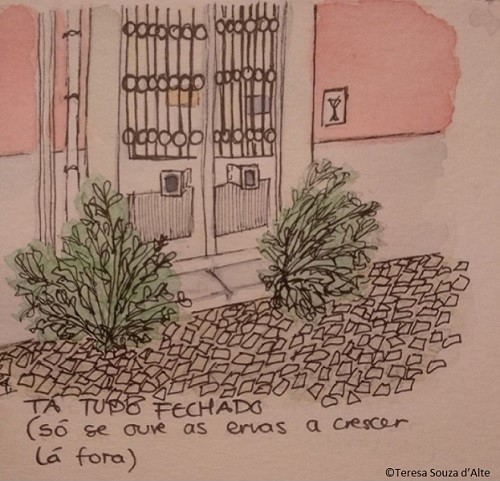 TA TUDO FECHADO
(só se ouve as ervas a crescer
lá fora)
©Teresa Souza d'Alte